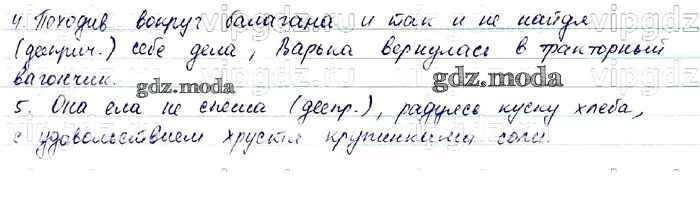 4. Походив вокруг балагана и так и не найдя
(дееприч.) себе дела, Варька вернулась в тракторный
вагончик.
gdz.moda
5. Она ела не спеша (деепр.), радуясь куску хлеба,
gdz.moda
с удовольствием хрустя крупинками соли.